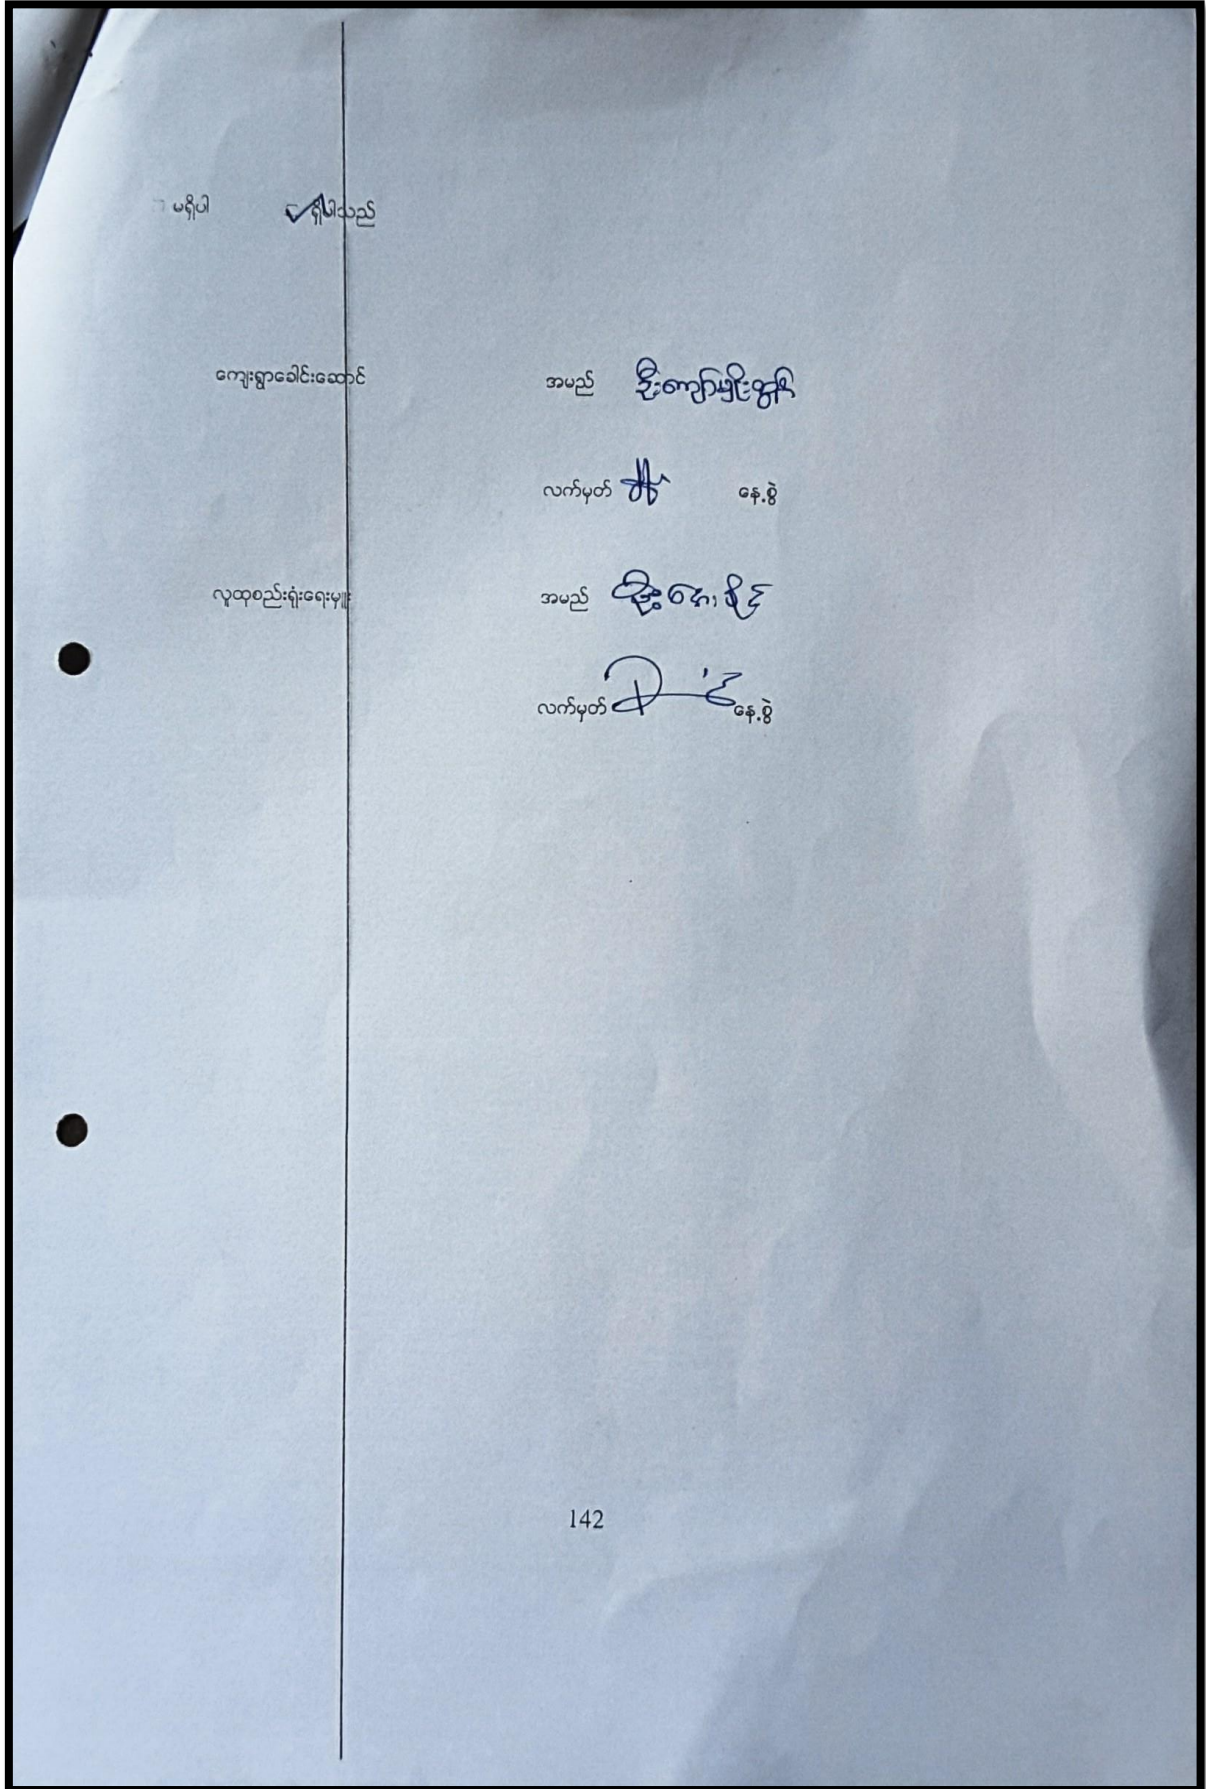 မရှိပါ ရှိပါသည်
ကျေးရွာခေါင်းဆောင် အမည် ဦးကျော်မျိုးထွန်း
လက်မှတ် နေ့စွဲ
လူထုစည်းရုံးရေးမှူး အမည် ဦးအေးနိုင်
လက်မှတ် နေ့စွဲ
142